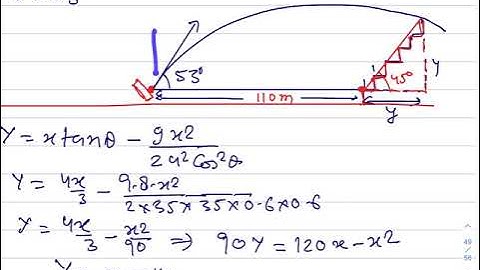 53°
45°
y
110m
y
Y = x tanθ - gx2 / 2u²Cos²θ
Y = 4x/3 - 9.8·x² / 2×35×35×0.6×0.6
Y = 4x/3 - x2/90 ⇒ 90Y = 120x - x²
49
58